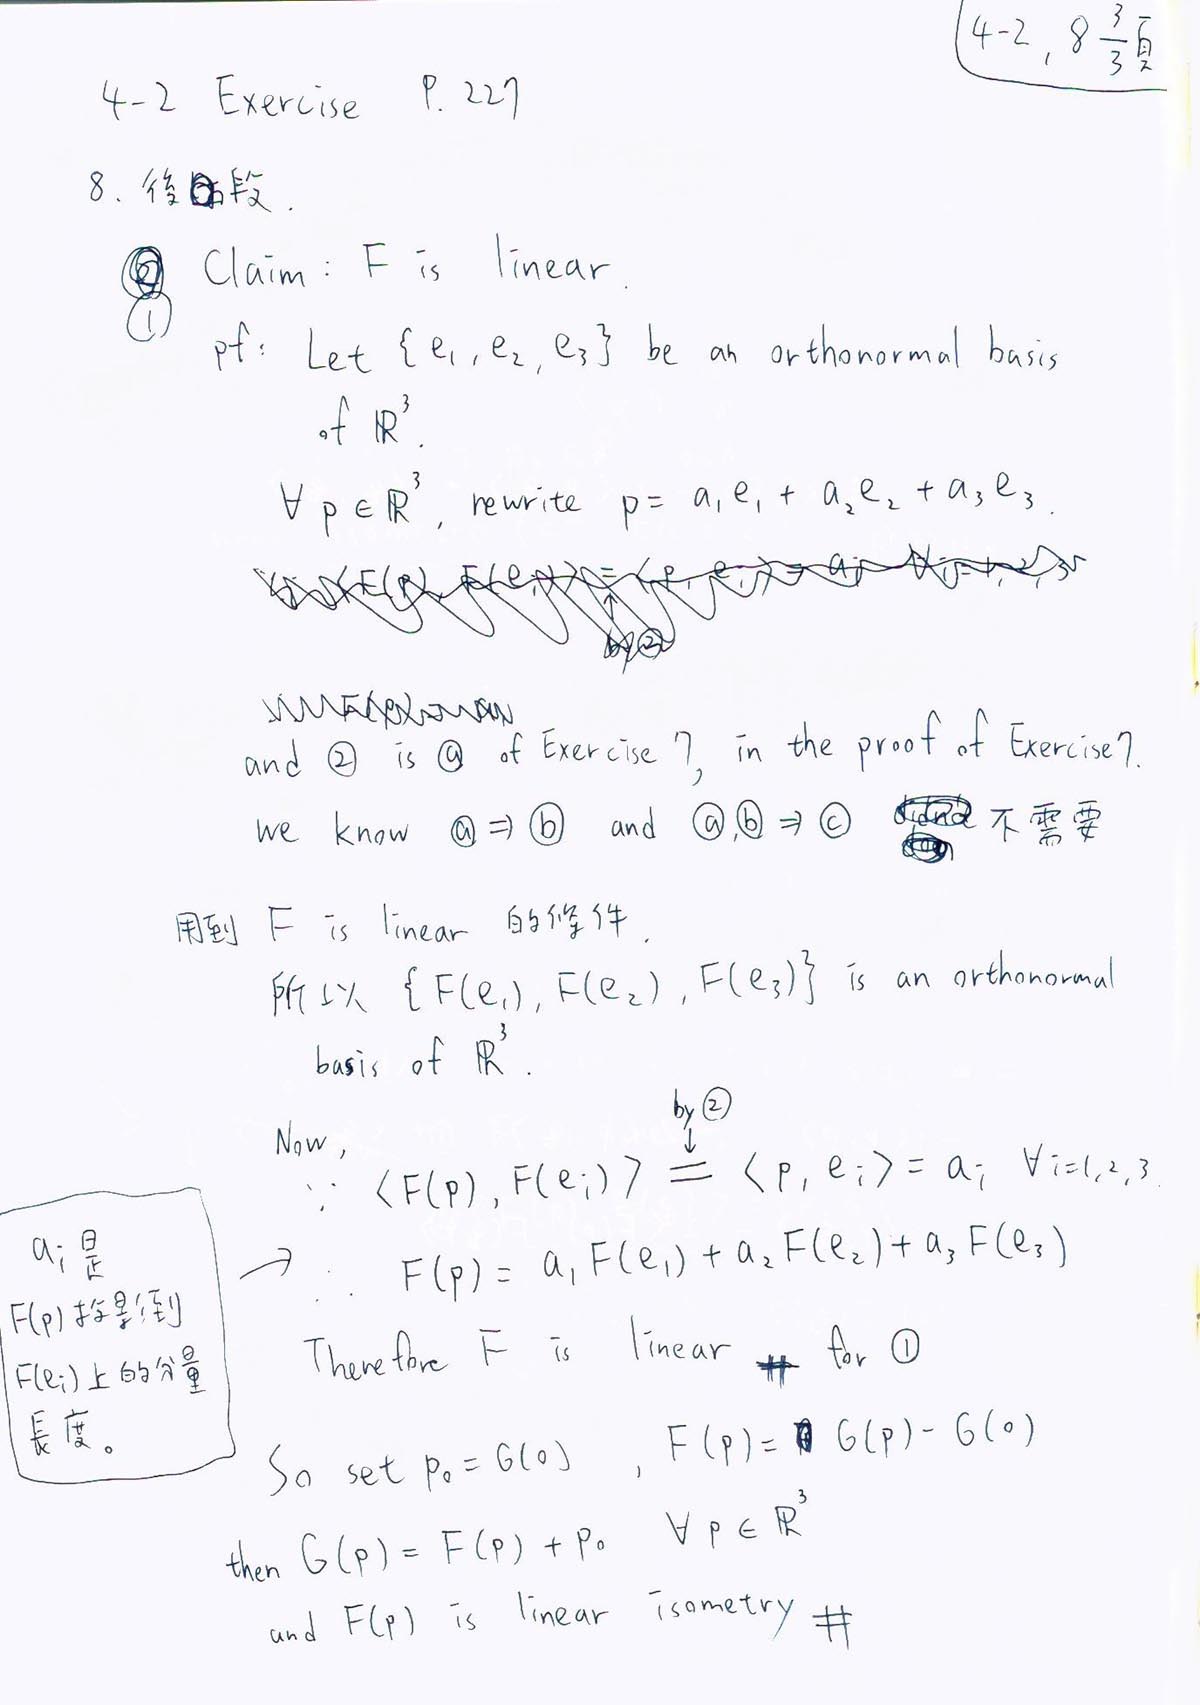 4-2, 8 3/3 頁
4-2 Exercise P. 227
8. 後段.
② Claim: F is linear.
①
pf: Let {e₁, e₂, e₃} be an orthonormal basis
of ℝ³.
∀ p ∈ ℝ³, rewrite p = a₁e₁ + a₂e₂ + a₃e₃.
by ②
and ② is ⓐ of Exercise 7, in the proof of Exercise 7.
we know ⓐ ⇒ ⓑ and ⓐ,ⓑ ⇒ ⓒ 不需要
用到 F is linear 的條件.
所以 {F(e₁), F(e₂), F(e₃)} is an orthonormal
basis of ℝ³.
by ②
↓
Now,
∵ ⟨F(p), F(eᵢ)⟩ = ⟨p, eᵢ⟩ = aᵢ ∀ i=1,2,3.
∴ F(p) = a₁F(e₁) + a₂F(e₂) + a₃F(e₃)
aᵢ是
F(p)投影到
F(eᵢ)上的分量
長度。
→
Therefore F is linear # for ①
So set p₀ = G(0), F(p) = G(p) - G(0)
then G(p) = F(p) + p₀ ∀ p ∈ ℝ³
and F(p) is linear isometry #